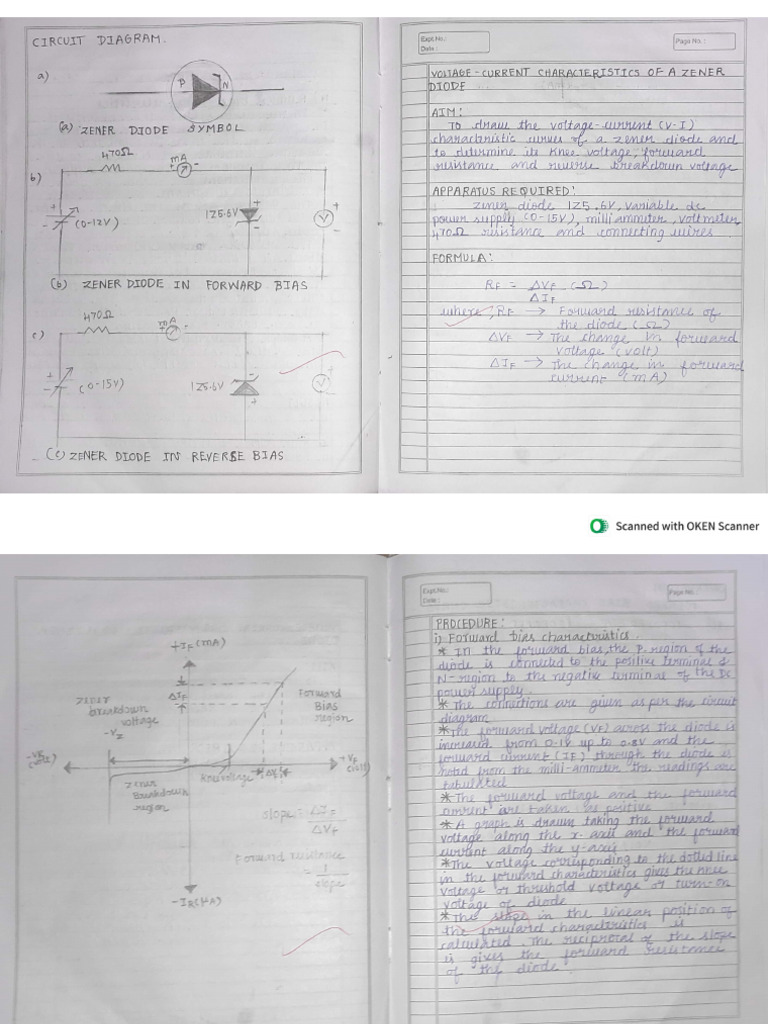 CIRCUIT DIAGRAM.
a)
P
N
(a) ZENER DIODE SYMBOL
b)
470Ω
mA
+
-
(0-12V)
1Z5.6V
V
+
-
(b) ZENER DIODE IN FORWARD BIAS
c)
470Ω
mA
+
-
(0-15V)
1Z5.6V
-
+
V
(c) ZENER DIODE IN REVERSE BIAS
Expt.No.:
Date :
Page No. :
VOLTAGE-CURRENT CHARACTERISTICS OF A ZENER
DIODE
AIM:
To draw the voltage-current (V-I)
characteristic curves of a zener diode and
to determine its knee voltage, forward
resistance and reverse breakdown voltage
APPARATUS REQUIRED:
zener diode 1Z5.6V, variable dc
power supply (0-15V), milliammeter, voltmeter
470Ω resistance and connecting wires.
FORMULA:
RF = ΔVF (Ω)
ΔIF
where, RF → Forward resistance of
the diode (Ω)
ΔVF → The change in forward
voltage (volt)
ΔIF → The change in forward
current (mA)
Scanned with OKEN Scanner
+IF (mA)
ΔIF
zener
breakdown
voltage
-Vz
Forward
Bias
region
-VR
(volt)
+VF
(volt)
Knee voltage
ΔVF
zener
Breakdown
region
slope = ΔIF
ΔVF
Forward resistance
= 1
slope
-IR(μA)
Expt.No.:
Date :
Page No. :
PROCEDURE:
i) Forward bias characteristics.
* In the forward bias, the P. region of the
diode is connected to the positive terminal &
N-region to the negative terminal of the DC
power supply.
* The connections are given as per the circuit
diagram
* The forward voltage (VF) across the diode is
increased from 0.1V up to 0.8V and the
forward current (IF) through the diode is
noted from the milli-ammeter. The readings are
tabulated
* The forward voltage and the forward
current are taken as positive
* A graph is drawn taking the forward
voltage along the x-axis and the forward
current along the y-axis
* The voltage corresponding to the dotted line
in the forward characteristics gives the knee
voltage or threshold voltage or turn-on
voltage of diode
* The slope in the linear position of
the forward characteristics is
calculated. The reciprocal of the slope
is gives the forward resistance
of the diode.